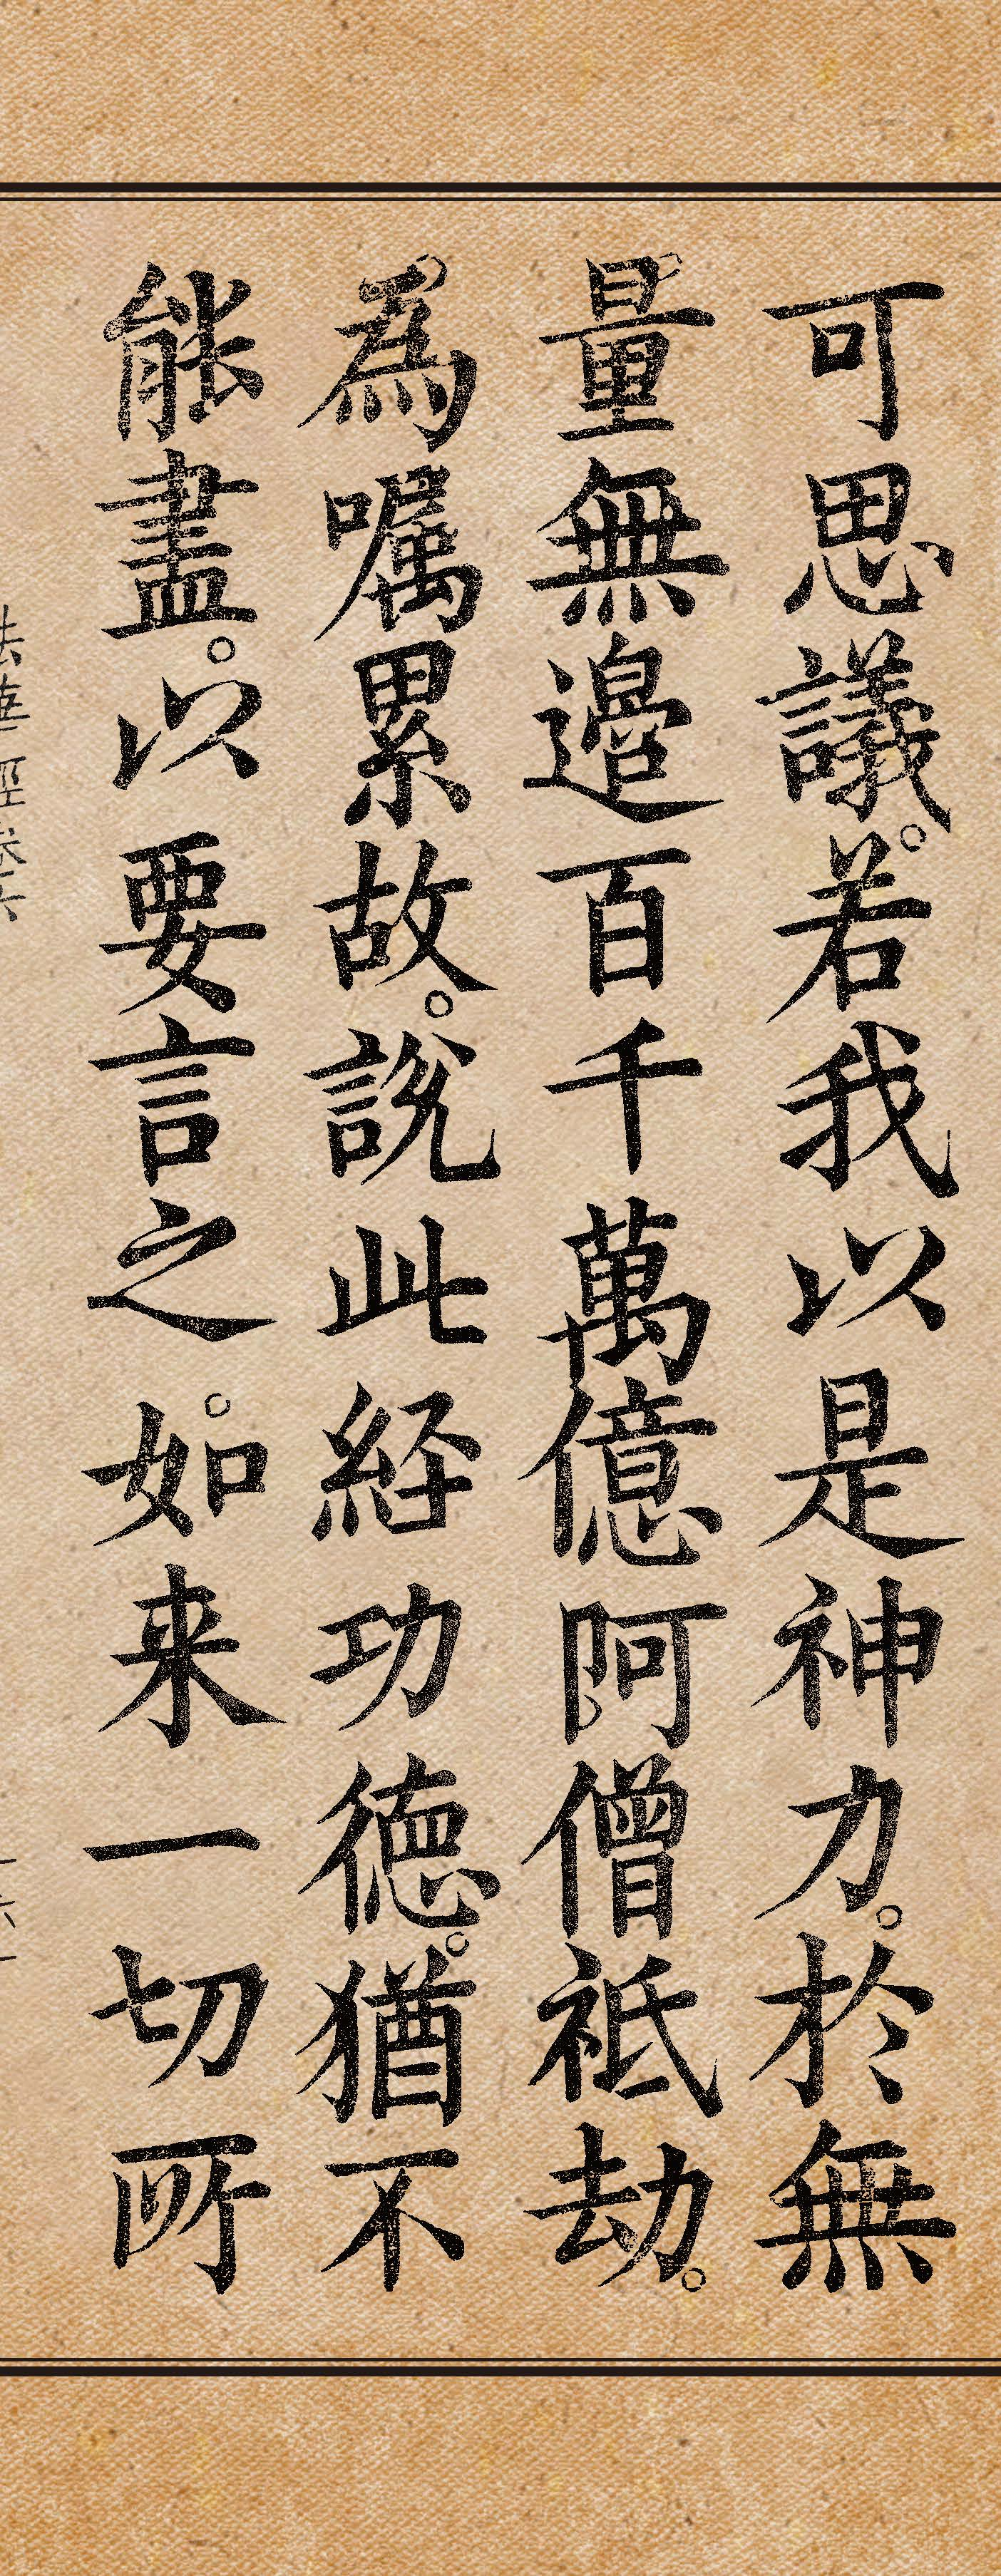 可思議。若我以是神力。於無
量無邊百千萬億阿僧祇劫。
為嘱累故。説此経功徳。猶不
能盡。以要言之。如来一切所
法華経巻六